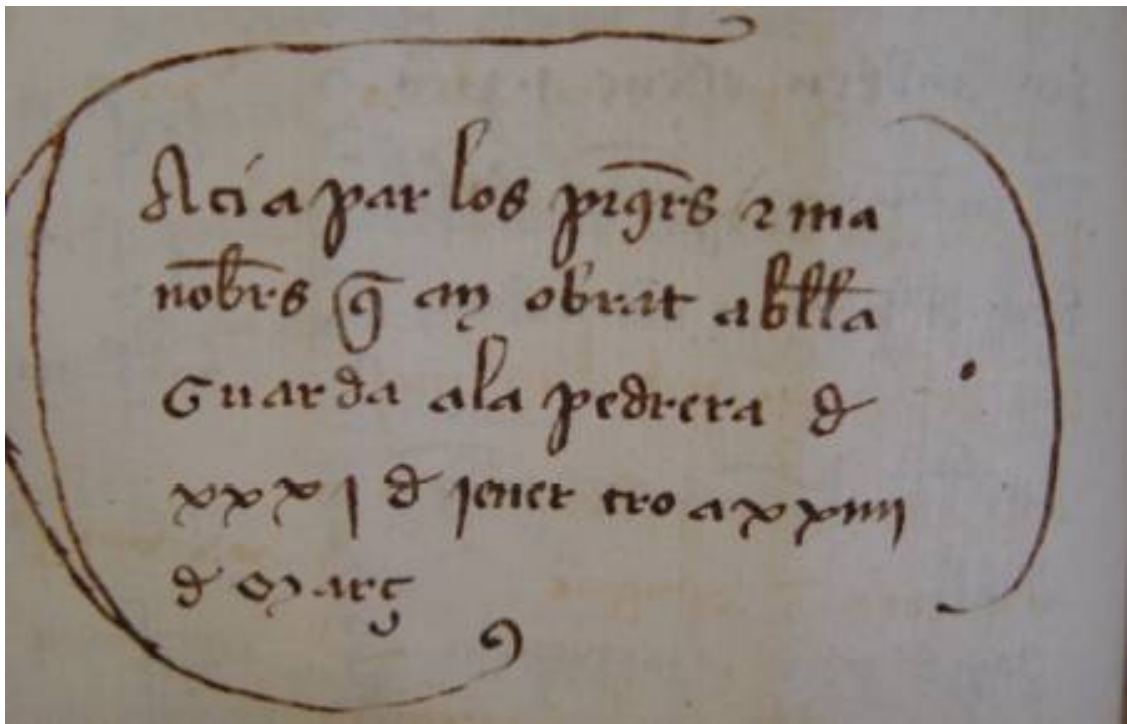 Aci apar los piqrs 7 ma
nobrs q an obrat a blla
Guarda a la pedrera d
xxxj d jener tro a xxiiij
d Març